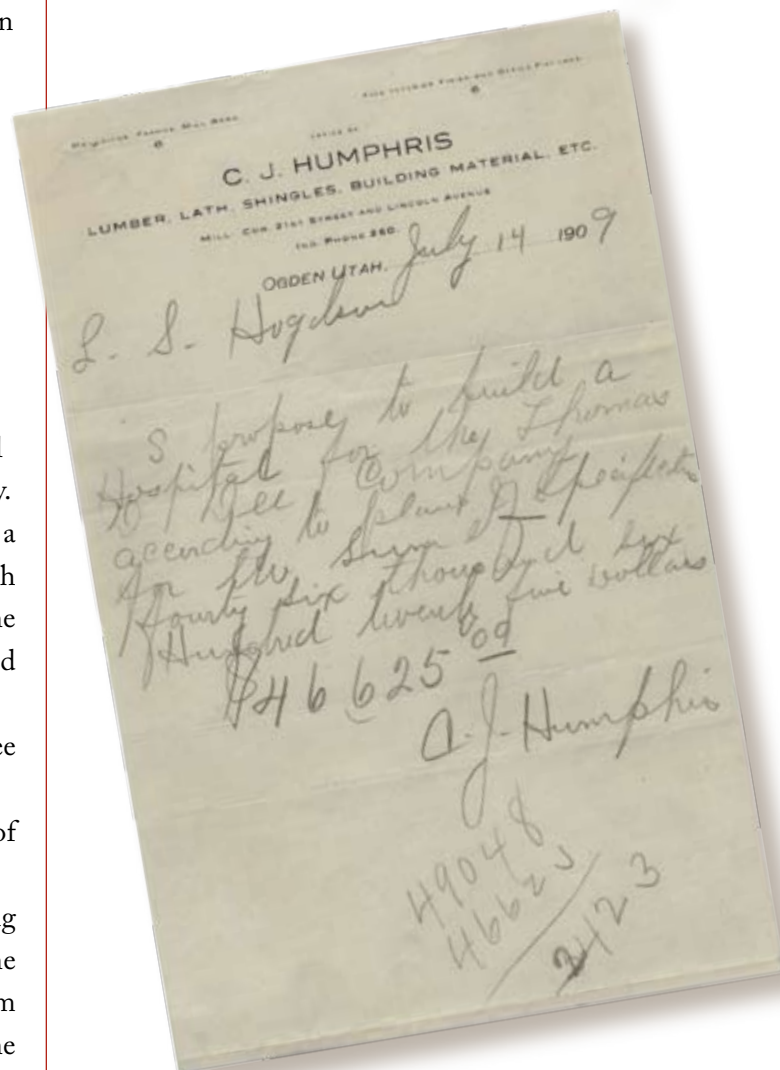 n
l
y.
a
h
ne
d
ee
of
ng
ne
m
ne
OFFICE OF
C. J. HUMPHRIS
LUMBER, LATH, SHINGLES, BUILDING MATERIAL, ETC.
MILL: COR. 21ST STREET AND LINCOLN AVENUE
IND. PHONE 260.
OGDEN UTAH, July 14 1909
L. S. Hogdson
I propose to build a
Hospital for the Thomas
Dee Company
according to plans &
for the sum of
fourty six thousand six
Hundred twenty five dollars
$46625 00
C. J. Humphris
49048
46625
2423